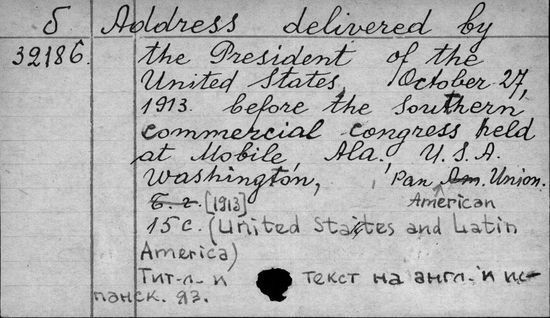 б Address delivered by
32186. the President of the
United States, October 27,
1913 before the Southern
commercial congress held
at Mobile, Ala., U.S.A.
Washington, Pan Am. Union.
Б. г. [1913] American
15 с. (United States and Latin
America)
Тит. л. и текст на англ. и ис-
панск. яз.